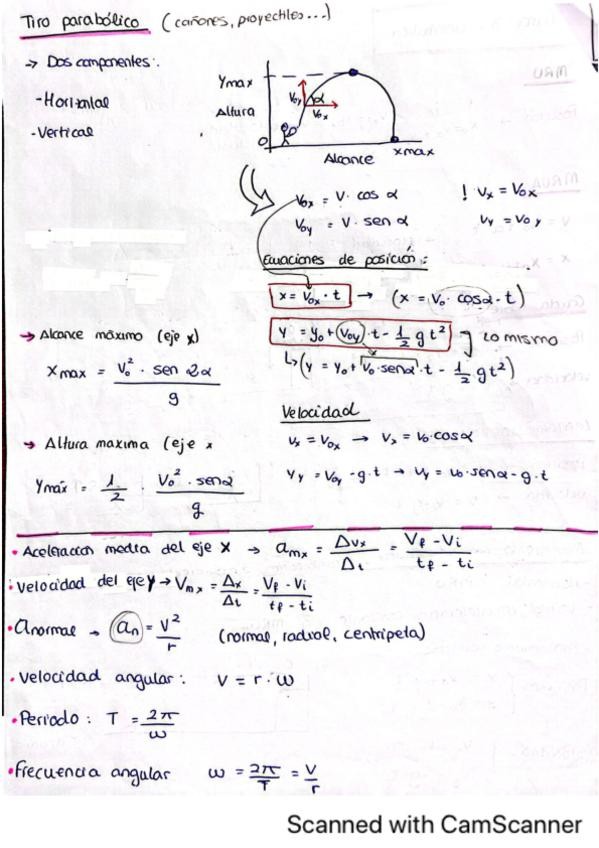 Tiro parabólico (cañones, proyectiles...)
→ Dos componentes:.
- Horizontal
- Vertical
Ymax
Altura
Voy
α
Vox
0
Alcance
xmax
Vox = V · cos α
! Vx = Vox
Voy = V · sen α
Vy = Voy
Ecuaciones de posición:
x = Vox · t → (x = Vo · cosα · t)
y = yo + Voy · t - 1/2 g t² lo mismo
↳ (y = yo + Vo·senα · t - 1/2 g t²)
→ Alcance máximo (eje x)
Xmax = Vo² · sen 2α / g
Velocidad
Vx = Vox → Vx = Vo·cosα
→ Altura maxima (eje x
Yy = Voy - g·t → Vy = vo·senα - g·t
Ymáx = 1/2 · Vo² · senα / g
• Aceleración media del eje X → amx = ΔVx / Δt = Vf - Vi / tf - ti
• Velocidad del eje Y → Vmx = Δx / Δt = Vf - Vi / tf - ti
• Anormal → an = V² / r (normal, radial, centrípeta)
• Velocidad angular: V = r · ω
• Periodo: T = 2π / ω
• Frecuencia angular ω = 2π / T = V / r
Scanned with CamScanner